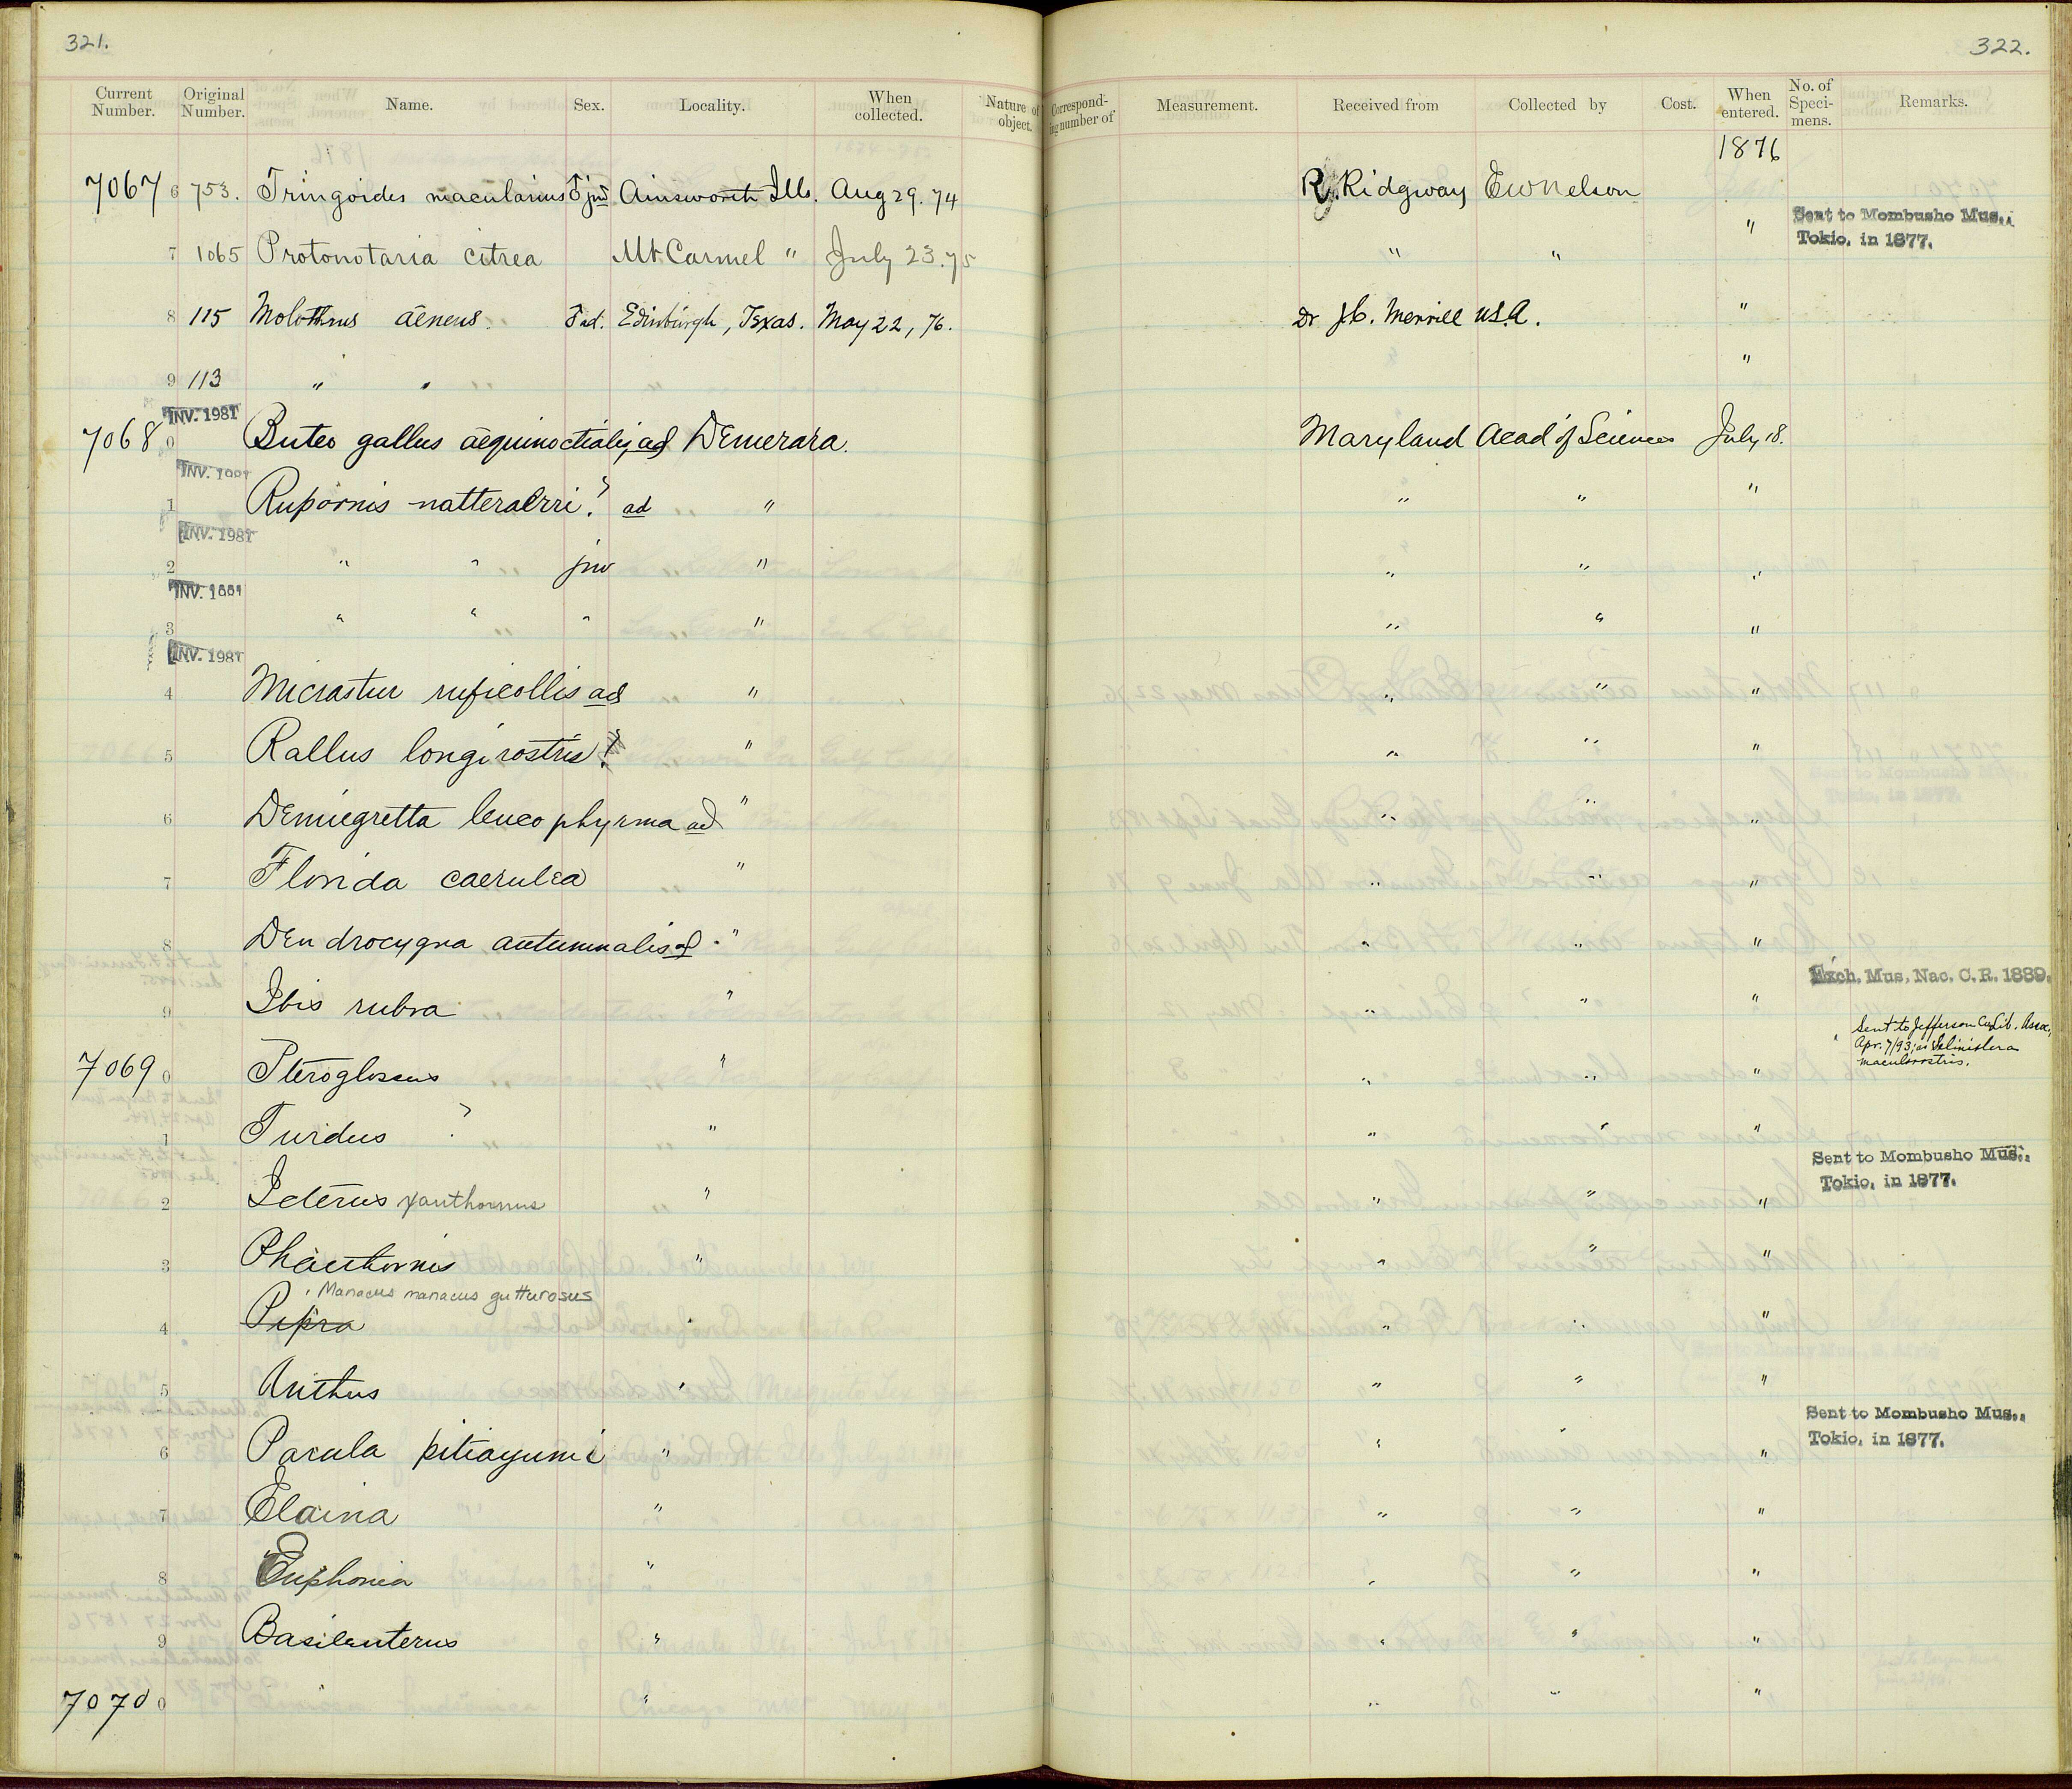 321.
322.
Current Number. Original Number. Name. Sex. Locality. When collected. Nature of object. Correspond- ing number of Measurement. Received from Collected by Cost. When entered. No. of Speci- mens. Remarks.
1876
7067 6 753. Tringoides macularius ♂ juv Ainsworth Ills. Aug 29. 74 R. Ridgway E W Nelson
" Sent to Mombusho Mus., Tokio, in 1877.
7 1065 Protonotaria citrea Mt Carmel " July 23. 75 " "
8 115 Molothrus aëneus. ♂ ad. Edinburgh, Texas. May 22, 76. Dr J.C. Merrill U.S.A. "
9 113 " " "
INV. 1981
7068 0 Buteo gallus aequinoctialis ad Demerara. Maryland Acad of Sciences July 18.
INV. 1981
1 Rupornis natterarri? ad " " " "
INV. 1981
2 " " juv " " " "
INV. 1981
3 " " " " " " "
INV. 1981
4 Micrastur ruficollis ad " " " "
5 Rallus longirostris? " " " "
6 Demiegretta leucophyrma ad " " " "
7 Florida caerulea " " " "
8 Dendrocygna autumnalis ad " " " "
Exch. Mus. Nac. C. R. 1889.
9 Ibis rubra " " " "
Sent to Jefferson Co. Lib. Assoc, Apr. 7/93; as Selinidera maculirostris.
7069 0 Pteroglossus " " " "
1 Turdus ? " " " "
Sent to Mombusho Mus., Tokio, in 1877.
2 Icterus xanthornus " " " "
3 Phaethornis " " " "
Manacus manacus gutturosus
4 Pipra " " " "
5 Anthus " " " "
Sent to Mombusho Mus., Tokio, in 1877.
6 Parula pitiayumi " " " "
7 Elaina " " " "
8 Euphonia " " " "
9 Basileuterus " " " "
7070 0 " " " "